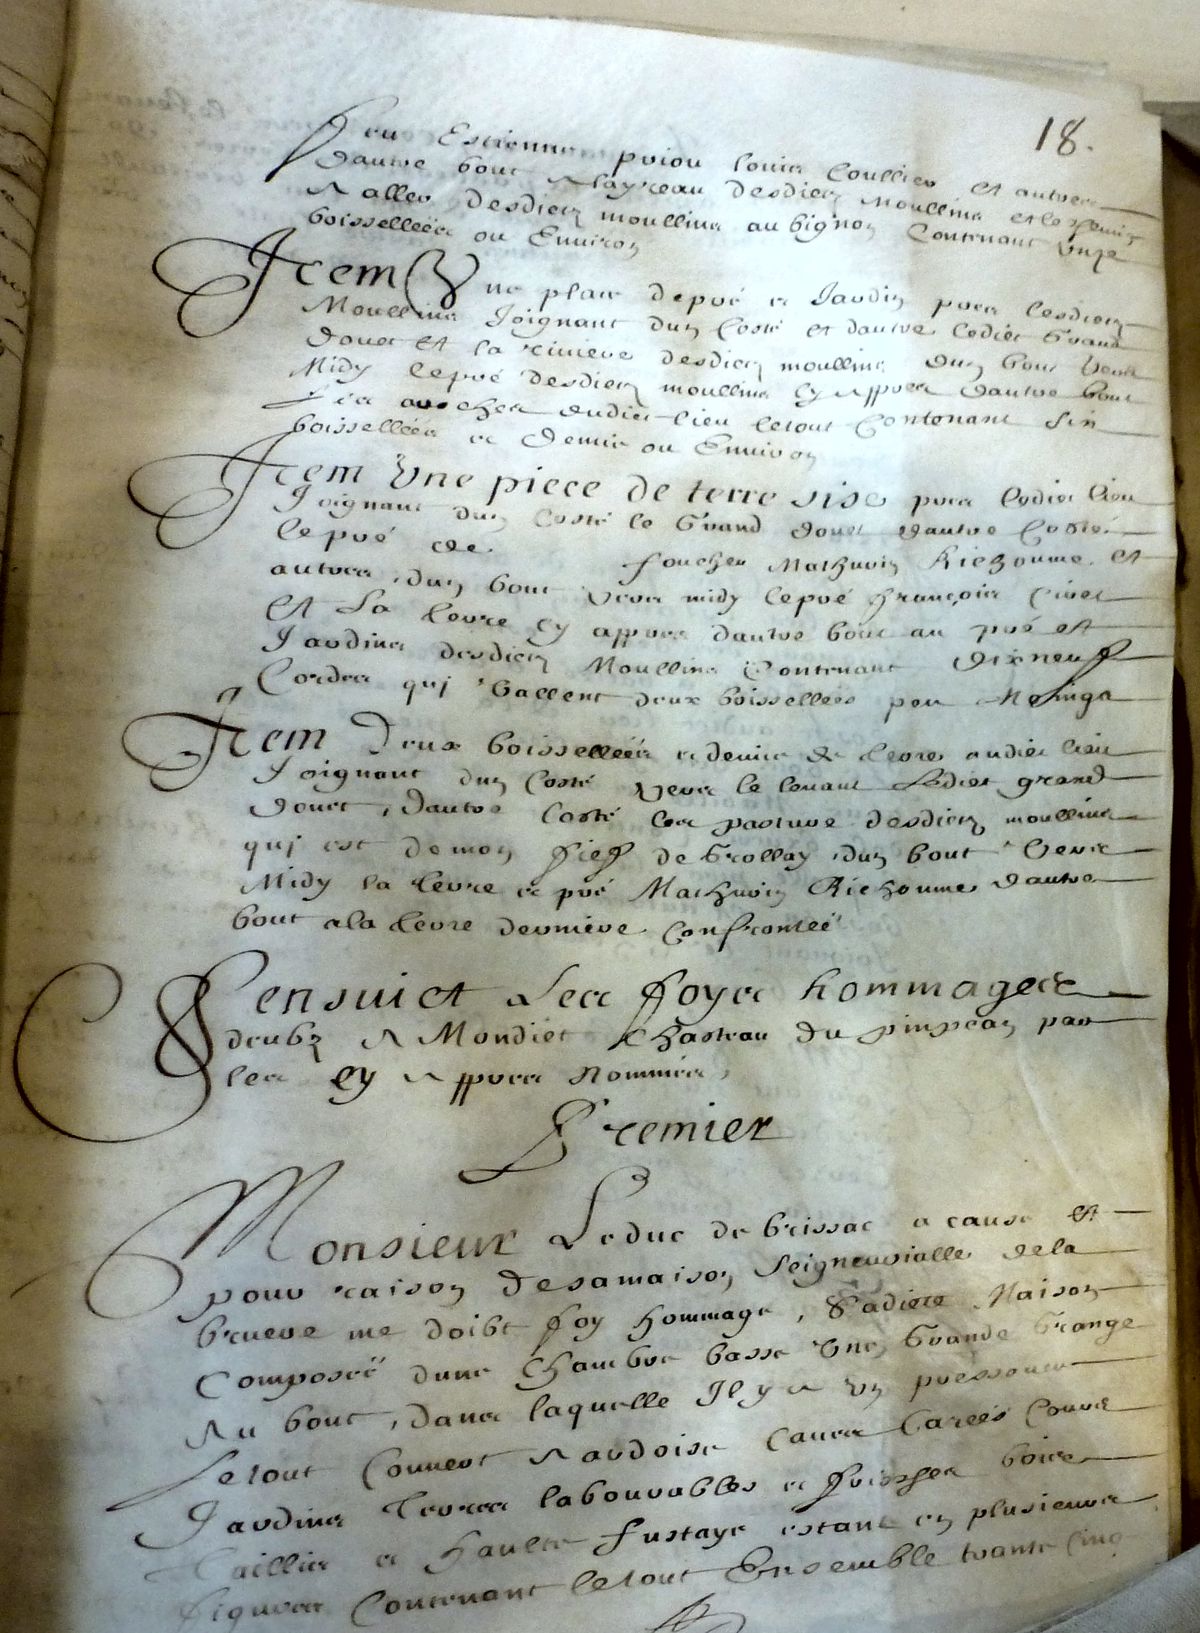 18.
feu Estienne priou louis Coullier et autres
dautre bout A layreau desdictz Moullins et le chemin
A aller desdictz moullins au bignon Contenant unze
boissellées ou Environ
Item Une place de pré et Jardin pres lesdictz
Moullins Joignant dun Costé et dautre ledict Grand
douet et la riviere desdictz moullins dun bout vers
Midy le pré desdictz moullins Cy Appres dautre bout
audict lieu letout Contenant six
boissellées et demie ou Environ
Item Une piece de terre sise pres ledict lieu
Joignant dun Costé le Grand douet dautre Costé
le pré de foucher Mathurin Richomme et
autres, dun bout vers midy le pré François Civet
Et La terre Cy appres dautre bout au pré et
Jardins desdictz Moullins Contenant dixneuf
Cordes qui vallent deux boissellées peu Moings
Item Deux boissellées et demie de terre audict lieu
Joignant dun Costé vers le levant Ledict grand
douet, dautre Costé les pasture desdictz moullins
qui est de mon fief de Grollay, dun bout vers
Midy la terre et pré Mathurin Richomme dautre
bout a la terre derniere Confrontée
Sensuict Les foyes hommages
deubz A Mondict Chasteau du pimpean par
les Cy Appres Nommés,
Premier
Monsieur Le duc de brissac a cause et
pour raison de sa maison Seigneurialle de la
bruere me doibt foy hommage, Sadicte Maison
Composée dune Chambre basse Une Grande Grange
Au bout, dans laquelle Il y a un pressouer
Le tout Couvert Dardoise Caves Carées Cours
Jardins terres labourables et friches bois
Taillis et haulte fustaye estant en plusieurs
piqures Contenant le tout Ensemble trante Cinq